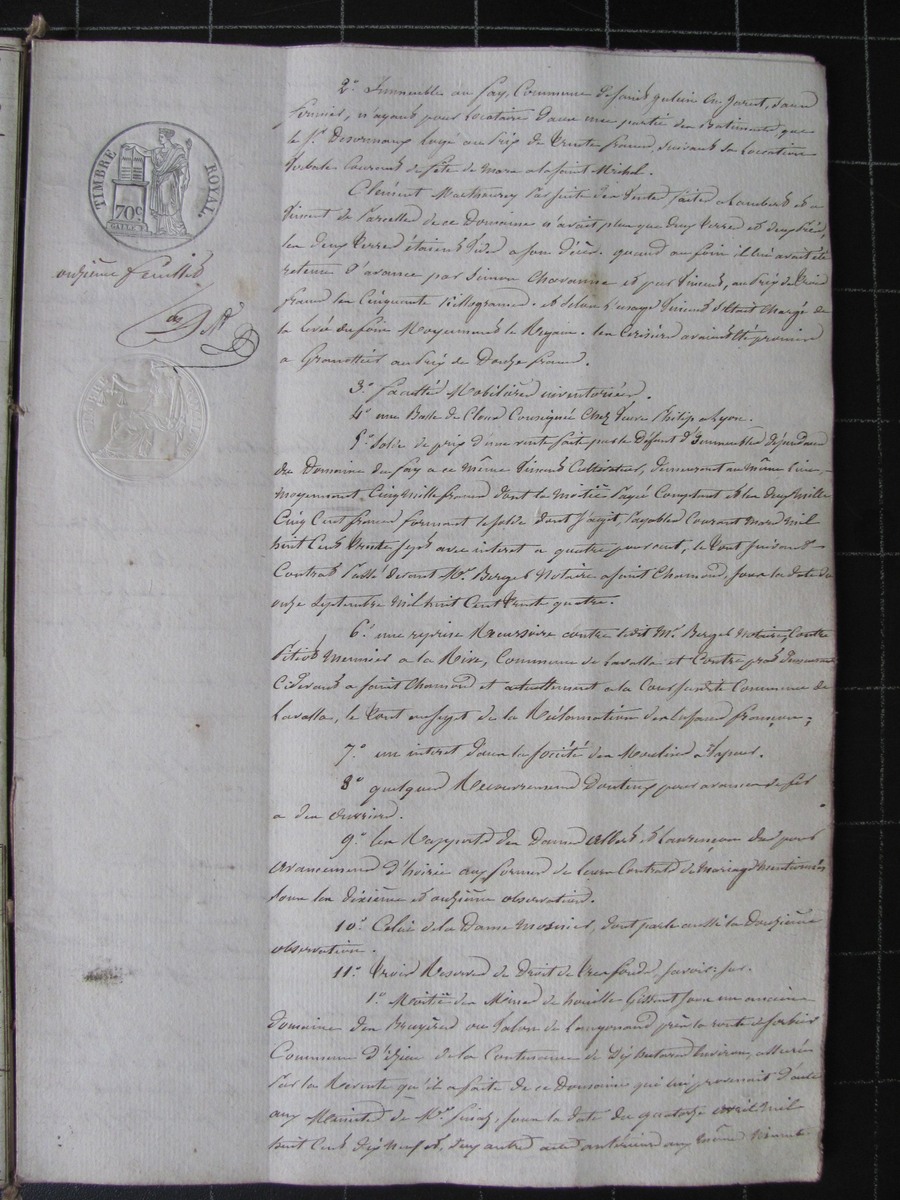 TIMBRE ROYAL.
70c
onzième feuillet
2° Immeuble au fay, Commune de saint julien en Jarret, sans
fermier, n'ayant pour locataire d'une partie des batiments que
le Sr. Desormaux logé au prix de trente francs, suivant sa location
verbale courant de fête de mars a la saint Michel.
Clément par suite des ventes faites a Lambert et a
Vincent de parcelles de ce Domaine n'avait plus que deux terres et deux prés,
les deux terres étaient a son décès. quand au foin il lui avait été
retenu d'avance par Simon Chavanne et par Vincent, au prix de trois
francs les Cinquante Killogrames. et selon l'usage Vincent s'étant chargé de
la levée du foin Moyennant le Regain. les Cerisiers avaient été promis
a au Prix de Douze francs.
3° facultés Mobilières inventoriées.
4° une Balle de Cloux Consignée Chez veuve Philip a Lyon.
5° Solde de prix d'une vente faite par le Défunt d'Immeubles dépendant
du Domaine du fay a ce même Vincent Cultivateur, demeurant au même lieu,
moyennant Cinq mille francs dont la moitié payée Comptant et les deux mille
Cinq Cent francs formant le solde dont s'agit, payables Courant Mars mil
huit Cent trente sept avec interet a quatre pour cent, le tout suivant
Contrat passé devant Me. Berget Notaire a saint Chamond, sous la date du
onze septembre mil huit Cent trente quatre.
6° une reprise Recursoire contre ledit Me. Berget Notaire, Contre
Meunier a la Rive, Commune de Lavalla et Contre
Cidevant a saint Chamond et actuellement a la Commune de
Lavalla, le tout au sujet de la
7° un interet dans la Société des Moulins a Vapeur.
8° quelques Recouvrements Douteux pour avances de fer
a des ouvriers.
9° les Rapports des Dames Albert et Laurençon du pour
avancement d'hoirie aux formes de leurs Contrats de Mariage mentionnés
sous les dixième et onzième observations.
10° Celui de la Dame Mosnier, dont parle aussi la Douzième
observation.
11° Trois Reserves de Droit de Trèsfonds, savoir:
1° Moitié des Mines de houille Gissant sous un ancien
domaine des Bruyères ou près la route de
Commune d'izieu de la Contenance de Dix hectares environ, assurée
par la Revente qu'il a faite de ce Domaine qui lui provenait d'acte
aux Minutes de Me. sous la date du quatorze avril mil
huit Cent dix neuf et, deux autres actes antérieurs aux mêmes Minutes